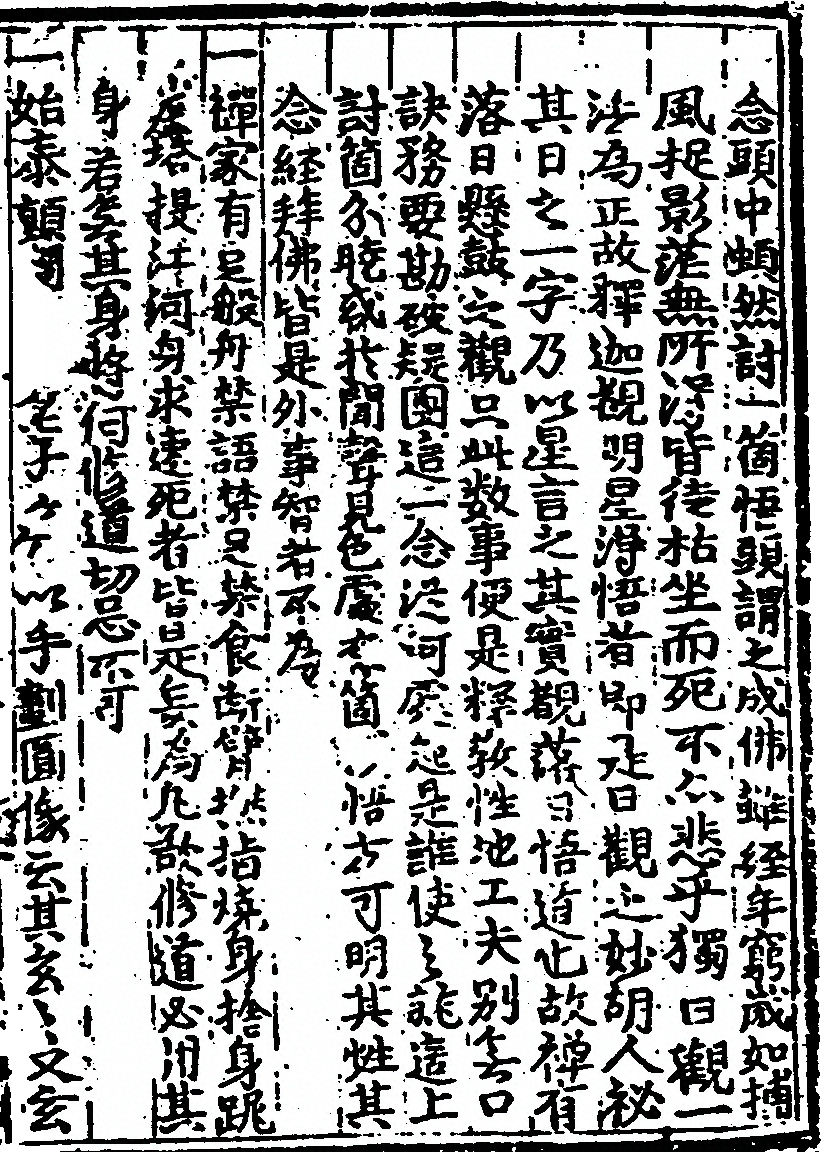 念頭中頓然討一箇悟頭謂之成佛雖經年窮歲如搏
風捉影茫無所得皆徒枯坐而死不亦悲乎獨日觀一
法為正故釋迦觀明星得悟者即是日觀之妙胡人祕
其日之一字乃以星言之其實觀落日悟道也故禪有
落日懸鼓之觀只此数事便是釋教性地工夫別無口
訣務要勘破疑團這一念從何處起是誰使之能這上
討箇分曉或於聞聲見色處有箇 悟方可明其性其
念経拜佛皆是外事智者不為
一禪家有足般舟禁語禁足禁食断臂燃指煉身捨身跳
塔投江河身求速死者皆是矣為凡欲修道必用其
身若無其身將何修道切忌不可
一始泰顛 老子 以手劃圓像云其玄々又玄